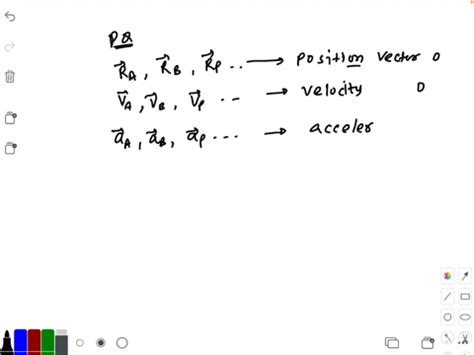 PQ
R⃗A, R⃗B, R⃗P .. ⟶ position vector 0
V⃗A, V⃗B, V⃗P .. ⟶ velocity 0
a⃗A, a⃗B, a⃗P ... ⟶ acceler